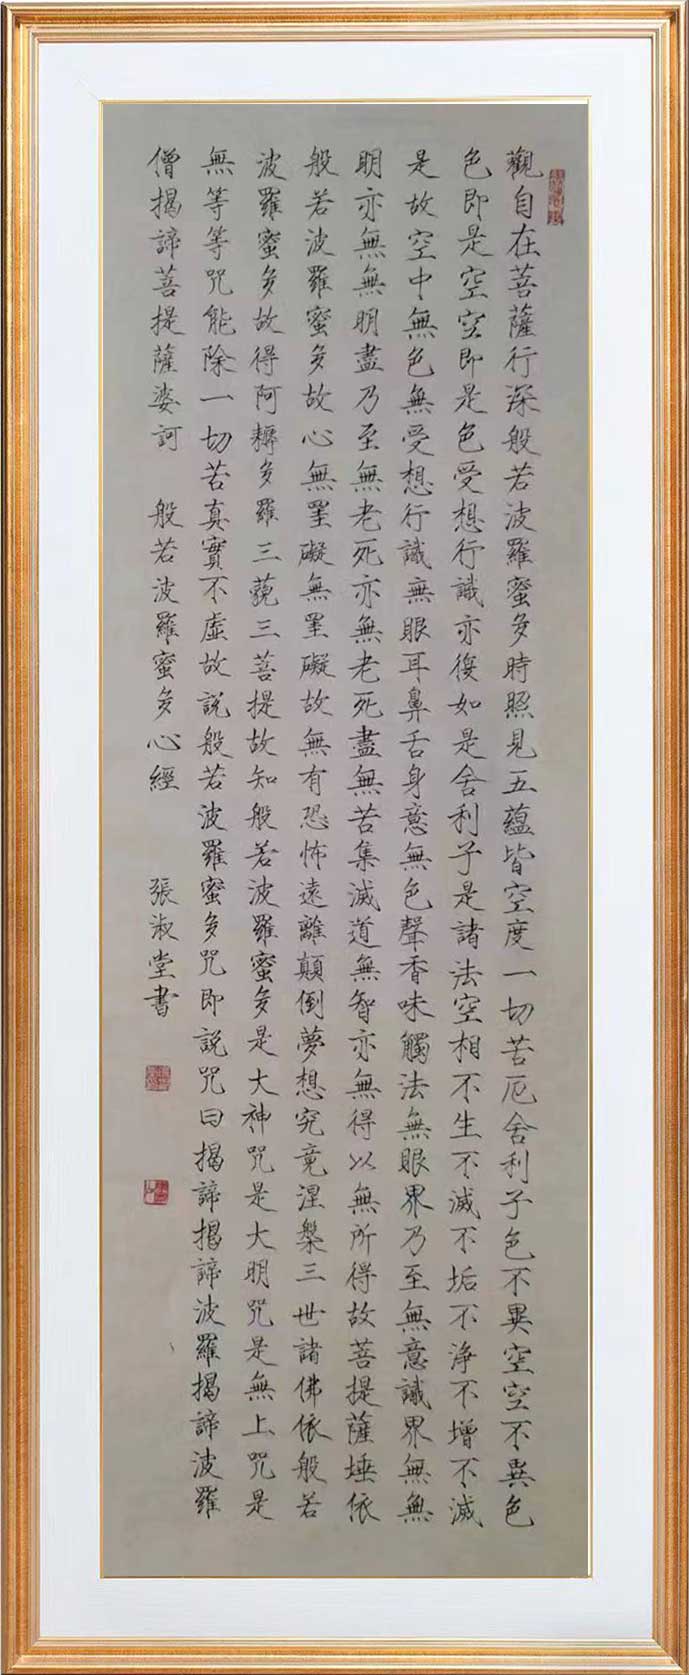 觀自在菩薩行深般若波羅蜜多時照見五蘊皆空度一切苦厄舍利子色不異空空不異色
色即是空空即是色受想行識亦復如是舍利子是諸法空相不生不滅不垢不淨不增不減
是故空中無色無受想行識無眼耳鼻舌身意無色聲香味觸法無眼界乃至無意識界無無
明亦無無明盡乃至無老死亦無老死盡無苦集滅道無智亦無得以無所得故菩提薩埵依
般若波羅蜜多故心無罣礙無罣礙故無有恐怖遠離顛倒夢想究竟涅槃三世諸佛依般若
波羅蜜多故得阿耨多羅三藐三菩提故知般若波羅蜜多是大神咒是大明咒是無上咒是
無等等咒能除一切苦真實不虛故說般若波羅蜜多咒即說咒曰揭諦揭諦波羅揭諦波羅
僧揭諦菩提薩婆訶 般若波羅蜜多心經 張淑堂書